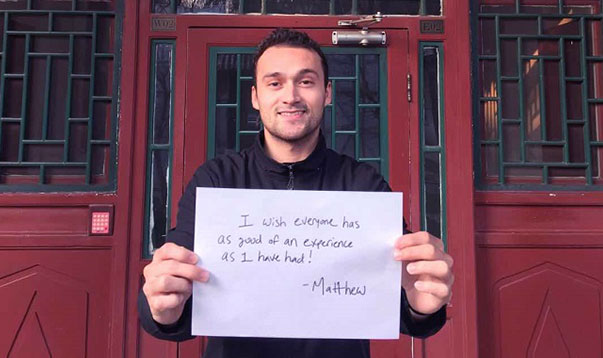 I wish everyone has
as good of an experience
as I have had!
-Matthew